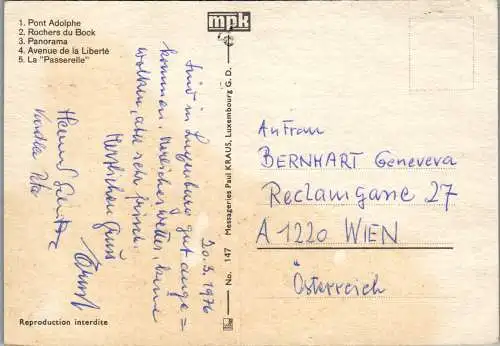 1. Pont Adolphe
2. Rochers du Bock
3. Panorama
4. Avenue de la Liberté
5. La "Passerelle"
mpk
20.3.1976
Sind in Luxemburg gut ange=
kommen. Herrliches Wetter, keine
Wolken, aber sehr frisch.
Herzlichen Gruß
Ernst
Reproduction interdite
No. 147 Messageries Paul KRAUS, Luxembourg G. D.
An Frau
BERNHART Geneveva
Reclamgasse 27
A 1220 WIEN
Österreich